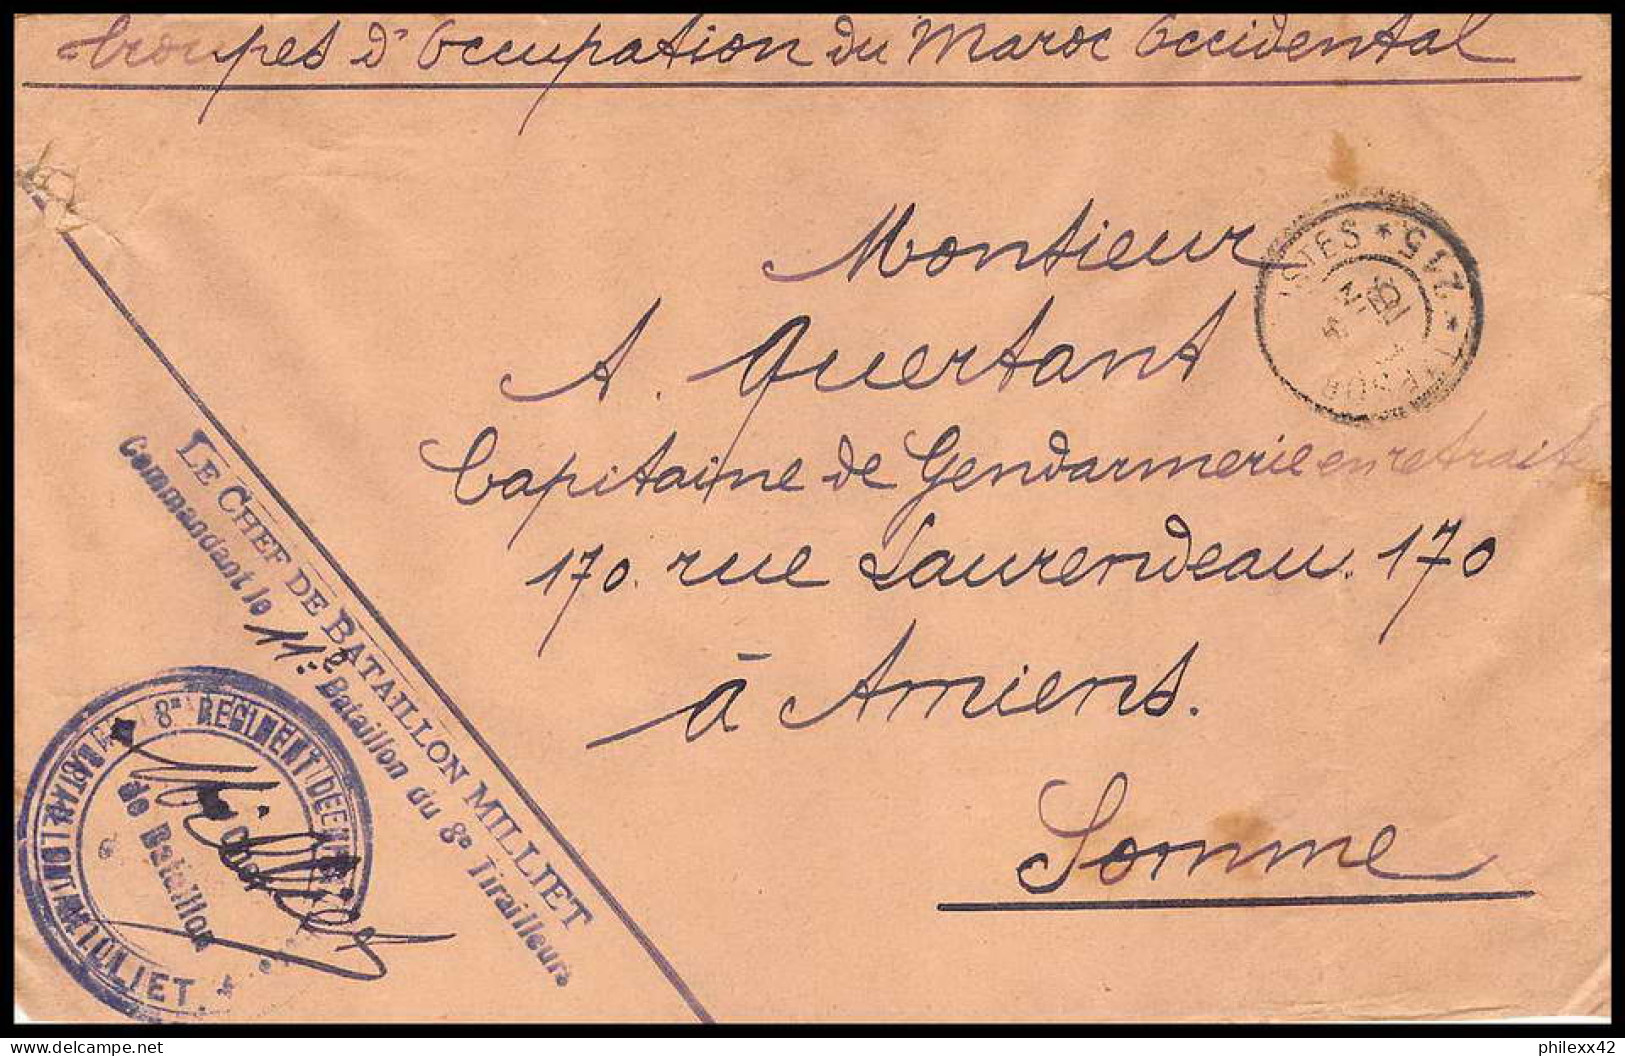 Troupes d'Occupation du Maroc Occidental
Monsieur
A. Quertant
Capitaine de Gendarmerie en retraite
170. rue Laurendeau. 170
à Amiens.
Somme
POSTES * 215 *
LE CHEF DE BATAILLON MILLIET
Commandant le 11e Bataillon du 8e Tirailleurs
8me REGIMENT DE
BATAILLON MILLIET
Chef
de Bataillon
Milliet
philexx42